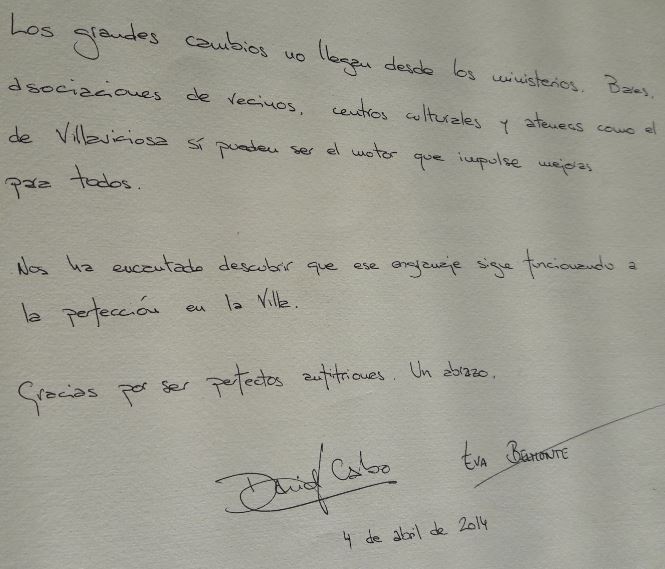 Los grandes cambios no llegan desde los ministerios. Bares,
asociaciones de vecinos, centros culturales y ateneos como el
de Villaviciosa sí pueden ser el motor que impulse mejoras
para todos.
Nos ha encantado descubrir que ese engranaje sigue funcionando a
la perfección en la Villa.
Gracias por ser perfectos anfitriones. Un abrazo.
David Cabo
Eva Belmonte
4 de abril de 2014